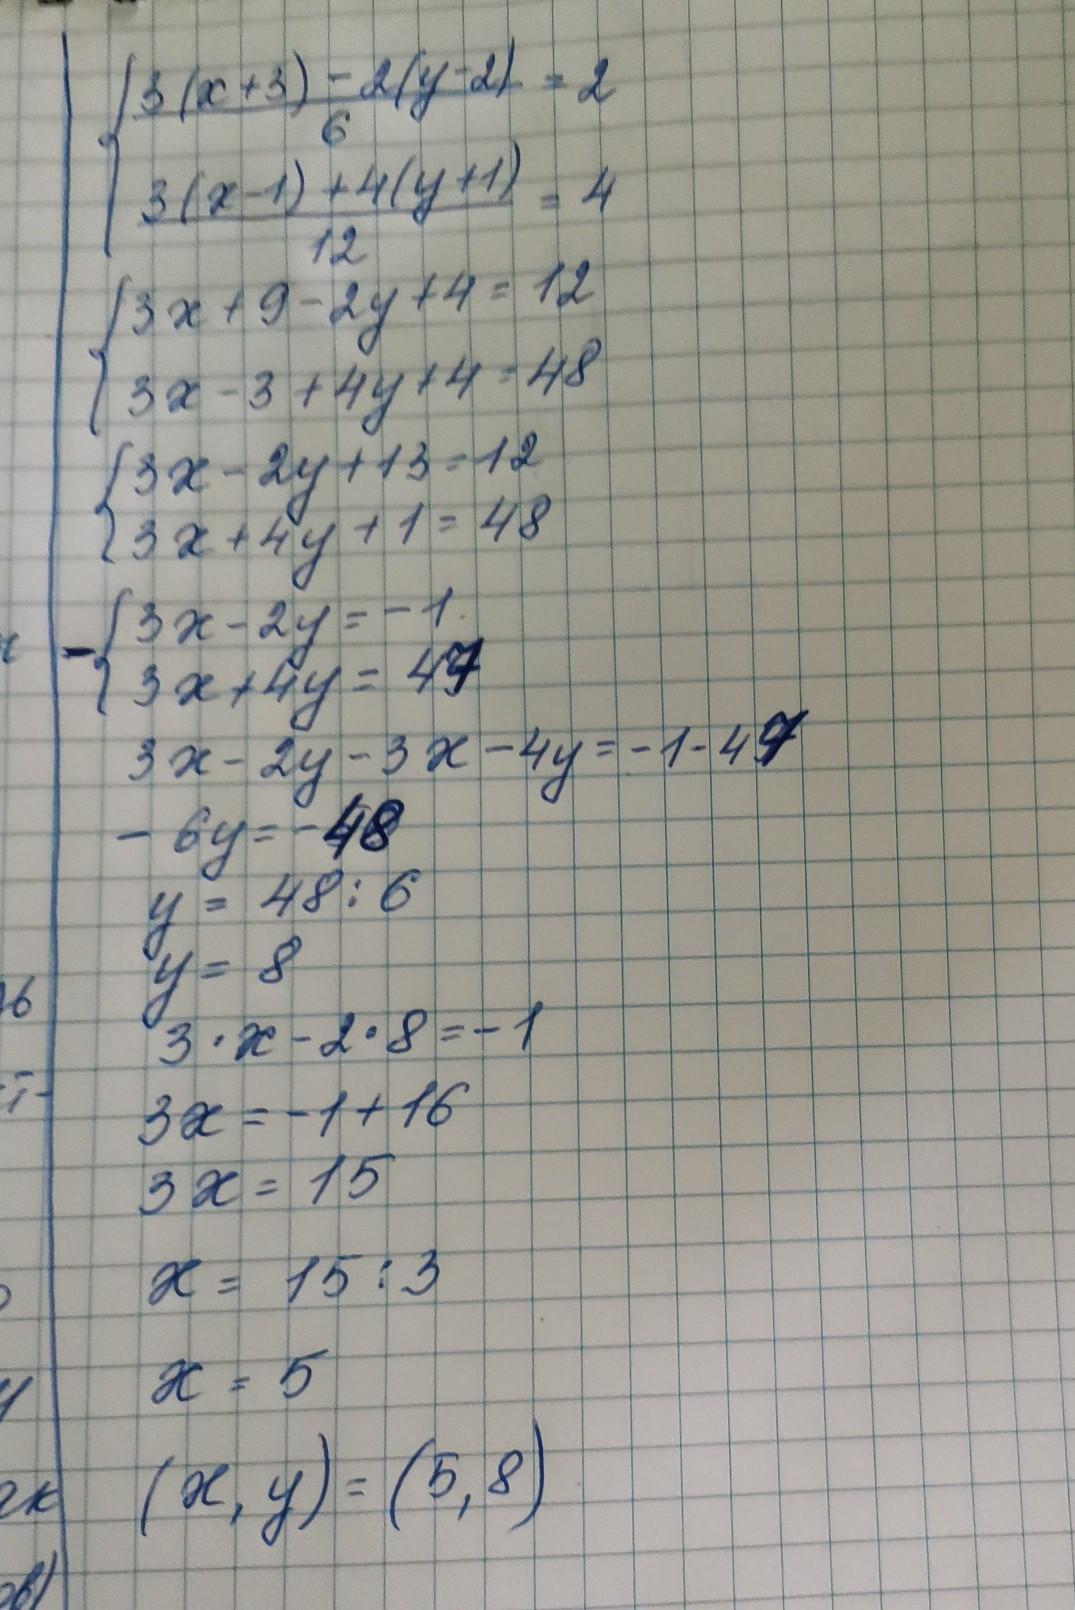 3(x+3)-2(y-2) = 2
6
3(x-1)+4(y+1) = 4
12
3x+9-2y+4=12
3x-3+4y+4=48
3x-2y+13=12
3x+4y+1=48
- 3x-2y=-1
3x+4y=47
3x-2y-3x-4y=-1-47
-6y=-48
y = 48:6
y = 8
3·x-2·8=-1
3x=-1+16
3x=15
x= 15:3
x = 5
(x, y)=(5,8)